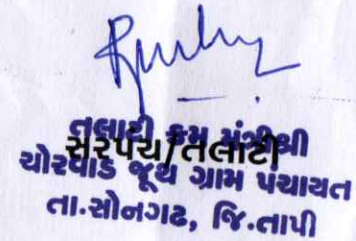 તલાટી કમ મંત્રીશ્રી
સરપંચ/તલાટી
ચોરવાડ જૂથ ગ્રામ પંચાયત
તા.સોનગઢ, જિ.તાપી